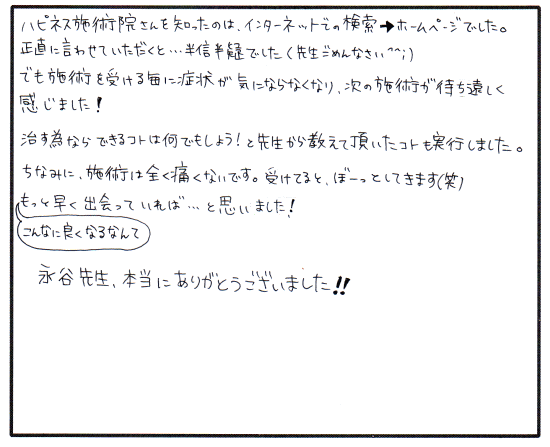 ハピネス施術院さんを知ったのは、インターネットでの検索→ホームページでした。
正直に言わせていただくと…半信半疑でした(先生ごめんなさい^^;)
でも施術を受ける毎に症状が気にならなくなり、次の施術が待ち遠しく
感じました!
治す為ならできるコトは何でもしよう!と先生から教えて頂いたコトも実行しました。
ちなみに、施術は全く痛くないです。受けてると、ぼーっとしてきます(笑)
もっと早く出会っていれば…と思いました!
こんなに良くなるなんて
永谷先生、本当にありがとうございました!!